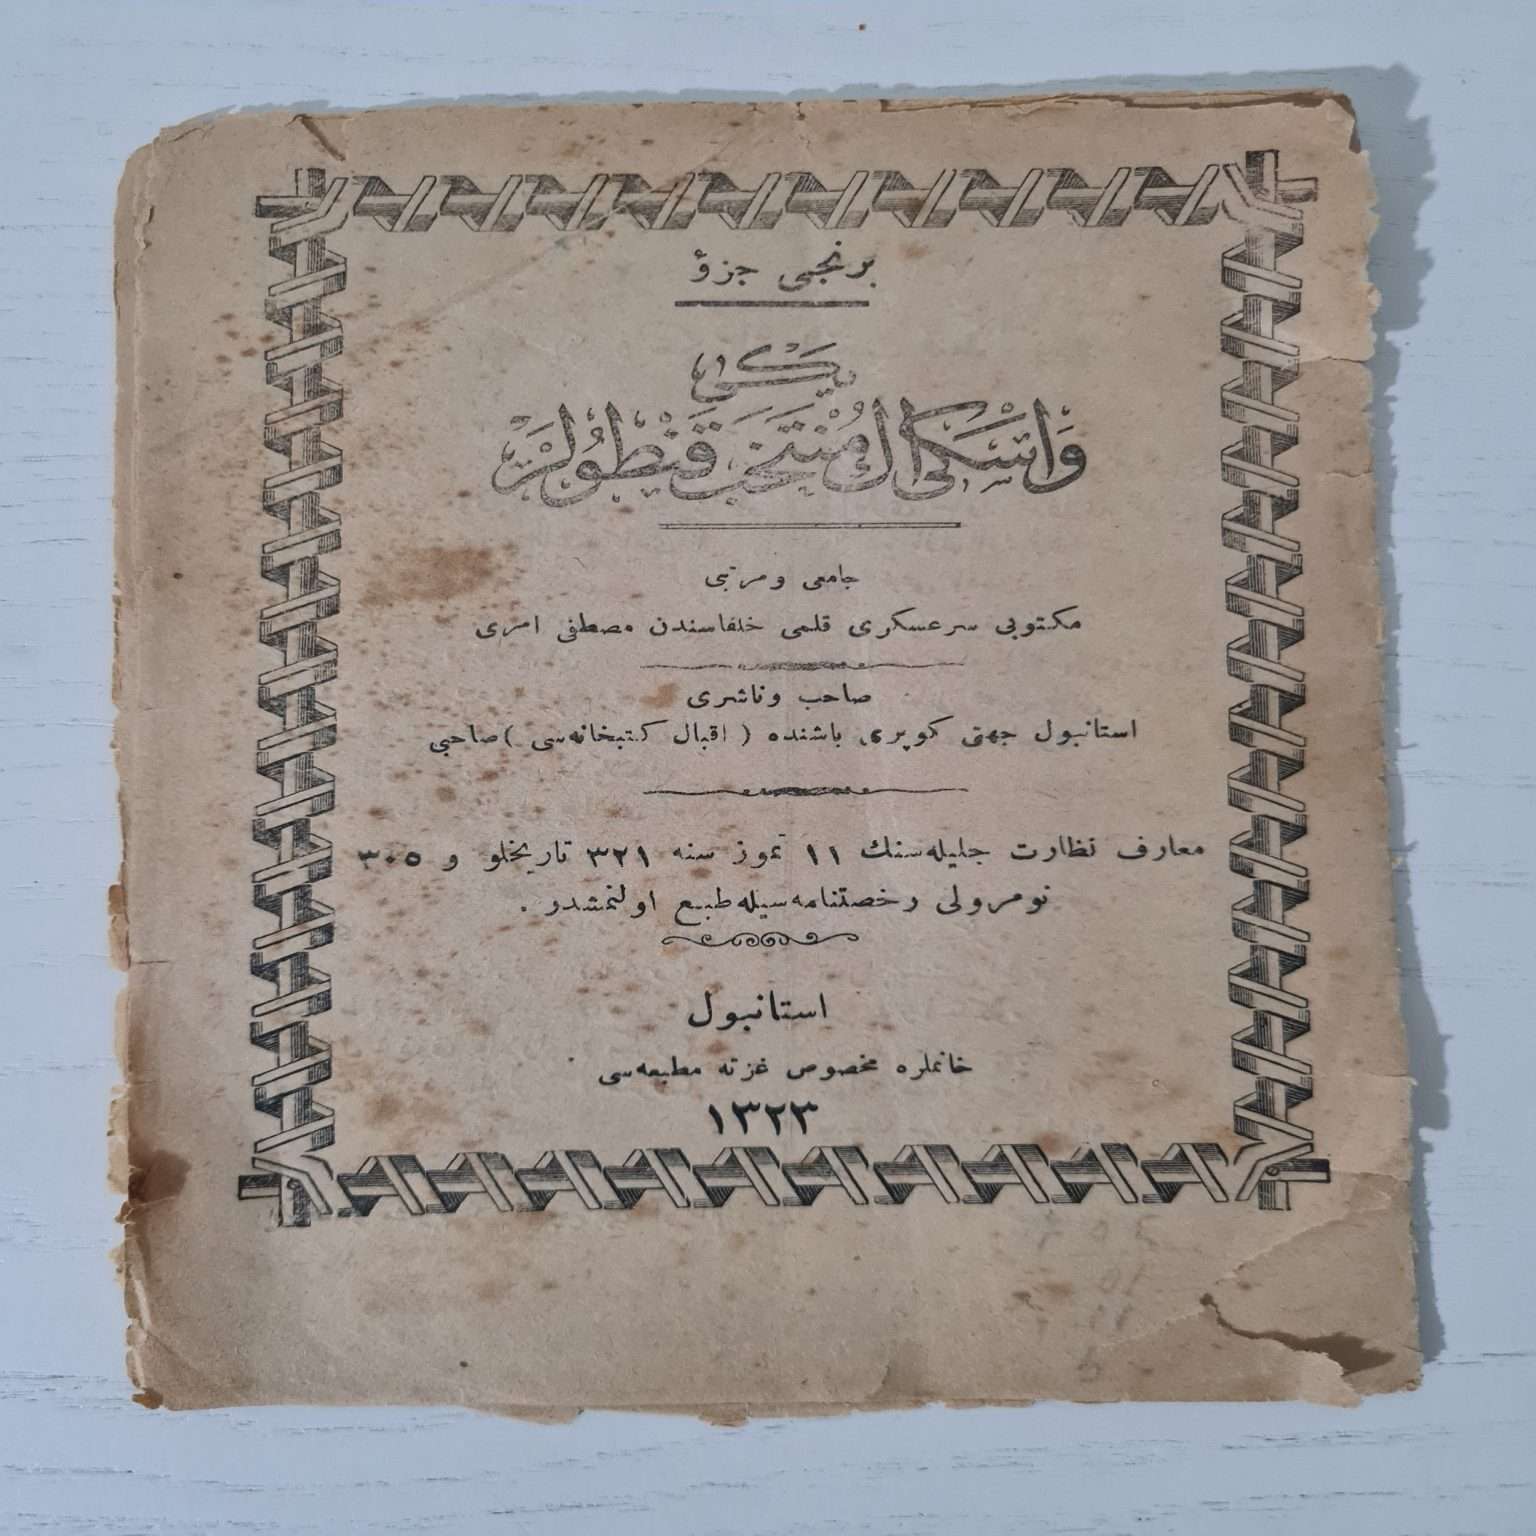 برنجی جزؤ
یكی
و اسكی اك منتخب قنطولر
جامعی و مرتبی
مكتوبی سرعسكری قلمی خلفاسندن مصطفی امری
صاحب و ناشری
استانبول جهتی كوپری باشنده ( اقبال كتبخانه‌سی ) صاحبی
معارف نظارت جلیله‌سنك ١١ تموز سنه ٣٢١ تاریخلو و ٣٠٥
نومرولی رخصتنامه‌سیله طبع اولنمشدر .
استانبول
خانملره مخصوص غزته مطبعه‌سی
١٣٢٣